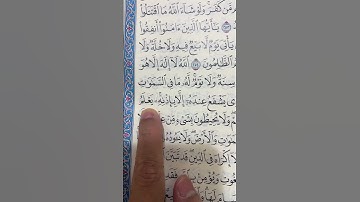 مَّن كَفَرَ وَلَوْ شَاءَ اللَّهُ مَا اقْتَتَلُوا
يَا أَيُّهَا الَّذِينَ آمَنُوا أَنفِقُوا
يَأْتِيَ يَوْمٌ لَّا بَيْعٌ فِيهِ وَلَا خُلَّةٌ وَلَا
الظَّالِمُونَ اللَّهُ لَا إِلَٰهَ إِلَّا هُوَ
سِنَةٌ وَلَا نَوْمٌ لَّهُ مَا فِي السَّمَاوَاتِ
يَشْفَعُ عِندَهُ إِلَّا بِإِذْنِهِ يَعْلَمُ
وَلَا يُحِيطُونَ بِشَيْءٍ مِّنْ
وَالْأَرْضَ وَلَا يَئُودُهُ
إِكْرَاهَ فِي الدِّينِ قَد تَّبَيَّنَ
وَيُؤْمِن فَقَدِ